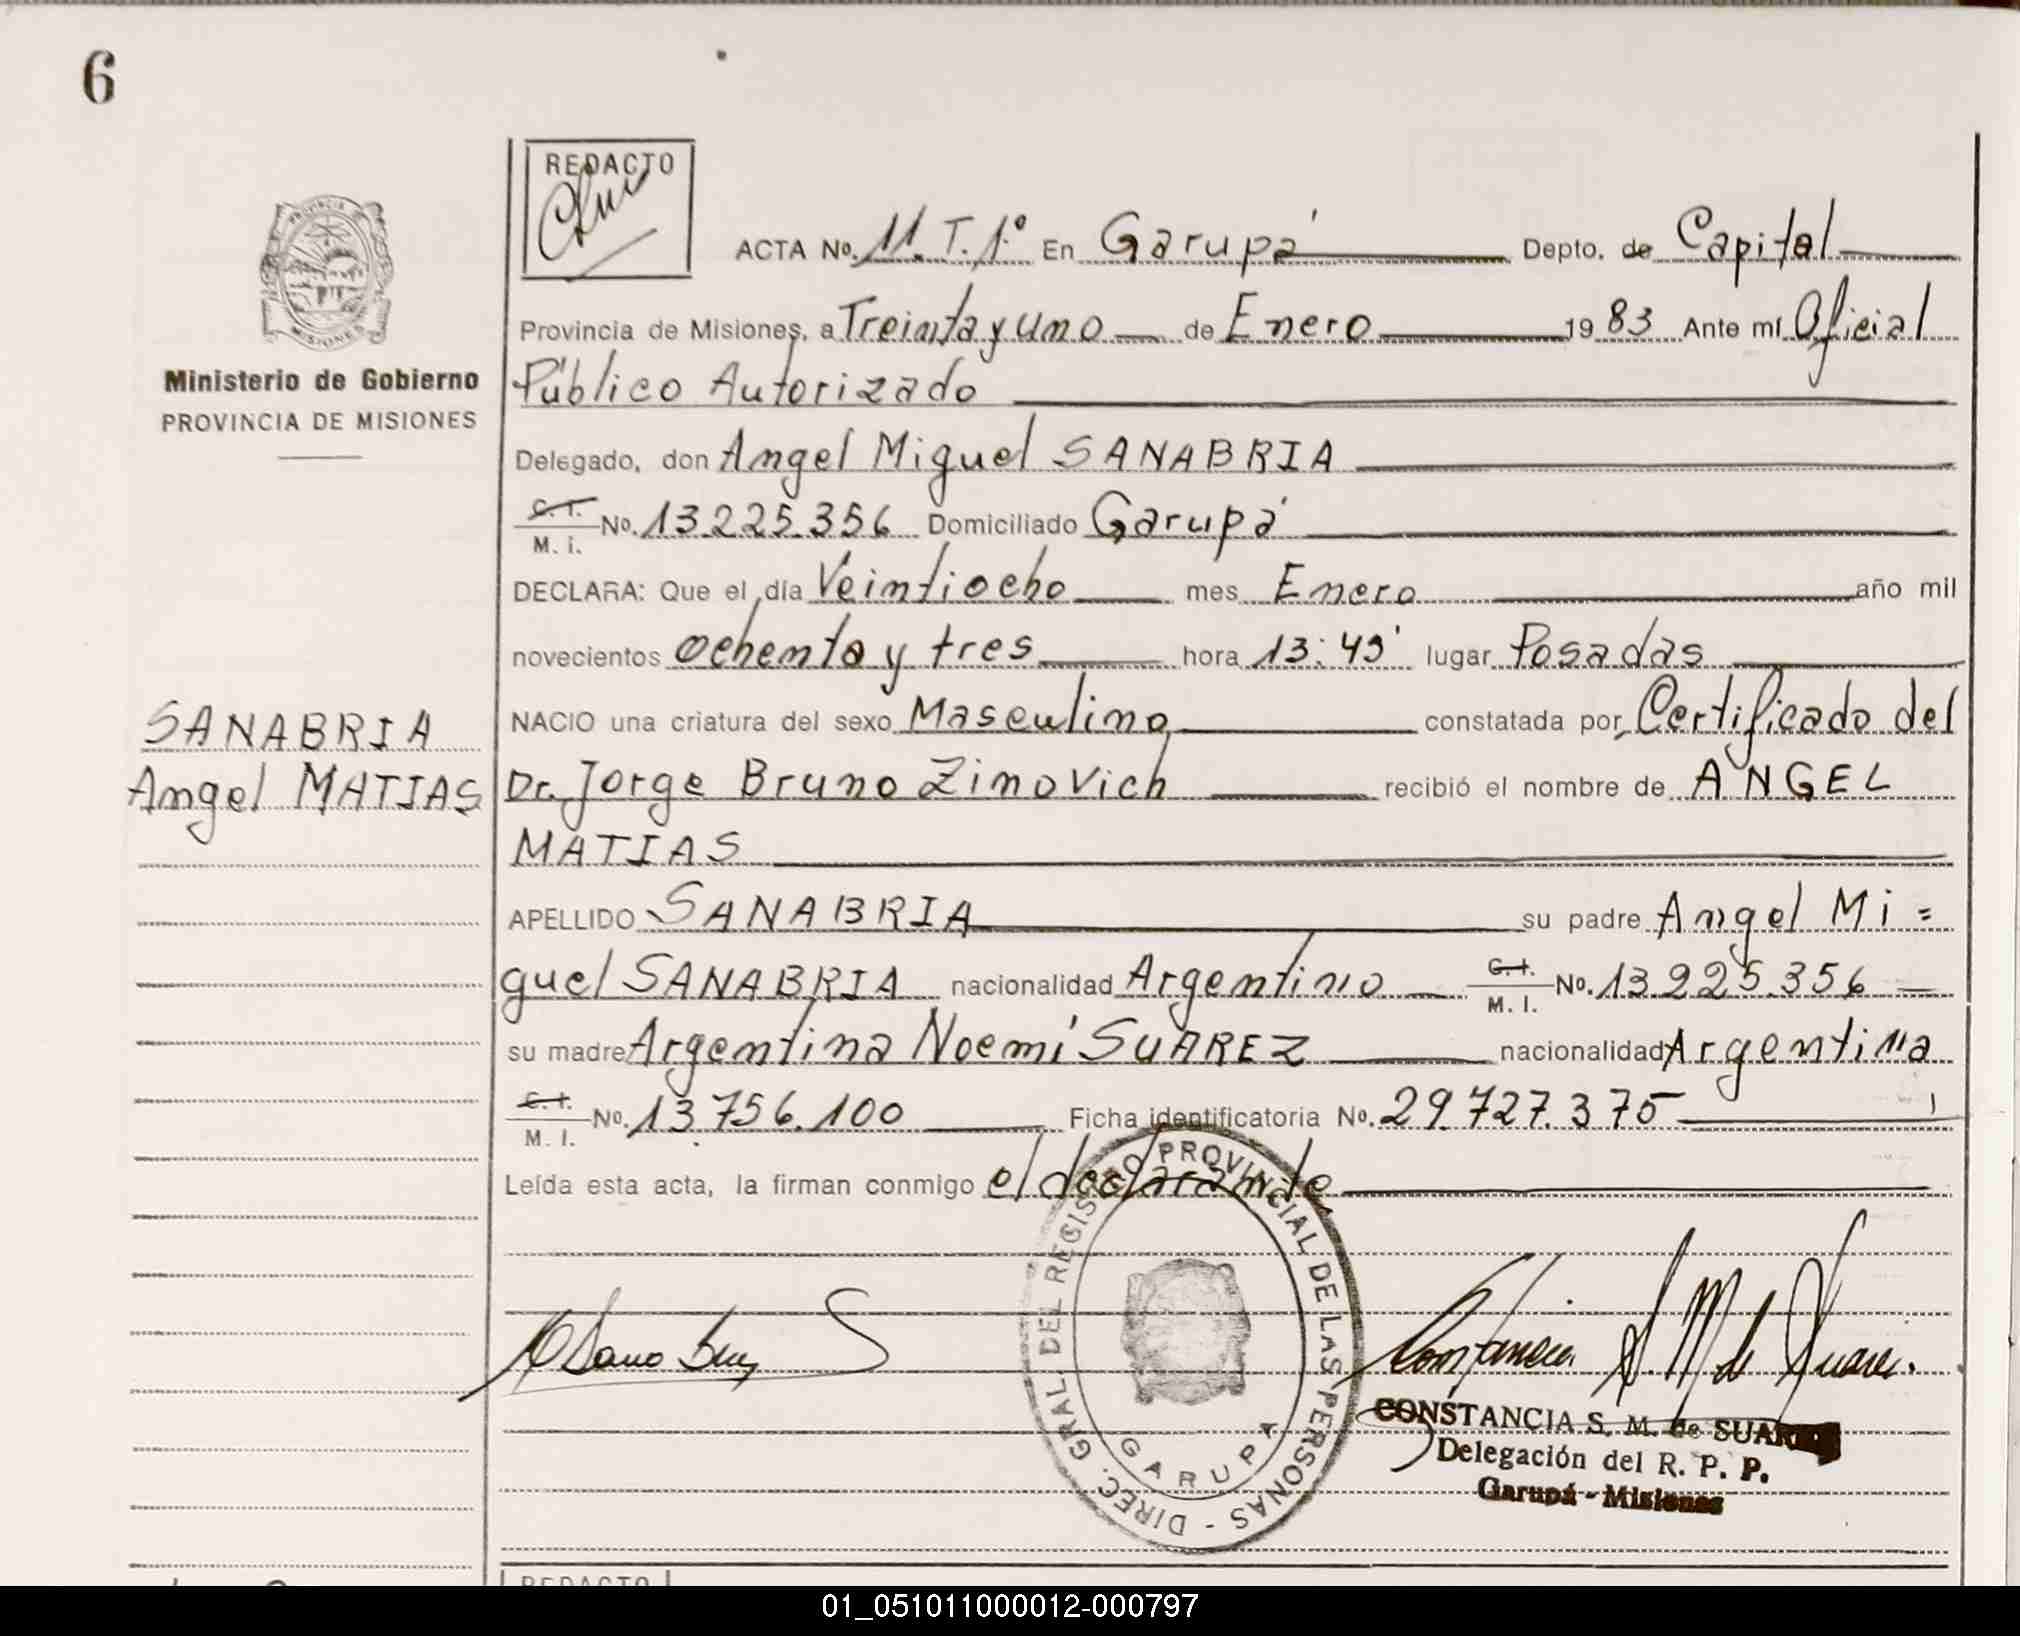 6
REDACTO
ACTA No. 11. T. 1º En Garupá Depto. de Capital
Provincia de Misiones, a Treinta y Uno de Enero 19 83 Ante mí Oficial
Público Autorizado
Delegado, don Angel Miguel SANABRIA
C. I.
M. i. No. 13.225.356 Domiciliado Garupá
DECLARA: Que el día Veintiocho mes Enero año mil
novecientos Ochenta y tres hora 13:43' lugar Posadas
NACIO una criatura del sexo Masculino constatada por Certificado del
Dr. Jorge Bruno Zinovich recibió el nombre de ANGEL
MATIAS
APELLIDO SANABRIA su padre Angel Mi=
guel SANABRIA nacionalidad Argentino C. I. M. I. No. 13.225.356
su madre Argentina Noemí SUAREZ nacionalidad Argentina
C. I.
M. I. No. 13.756.100 Ficha identificatoria No. 29.727.375
Leída esta acta, la firman conmigo el declarante
PROVINCIA DE
MISIONES
Ministerio de Gobierno
PROVINCIA DE MISIONES
SANABRIA
Angel MATIAS
DIREC. GRAL DEL REGISTRO PROVINCIAL DE LAS PERSONAS -
GARUPA
Constancia S. M. de Suarez.
CONSTANCIA S. M. de SUAREZ
Delegación del R. P. P.
Garupá - Misiones
REDACTO
01_051011000012-000797